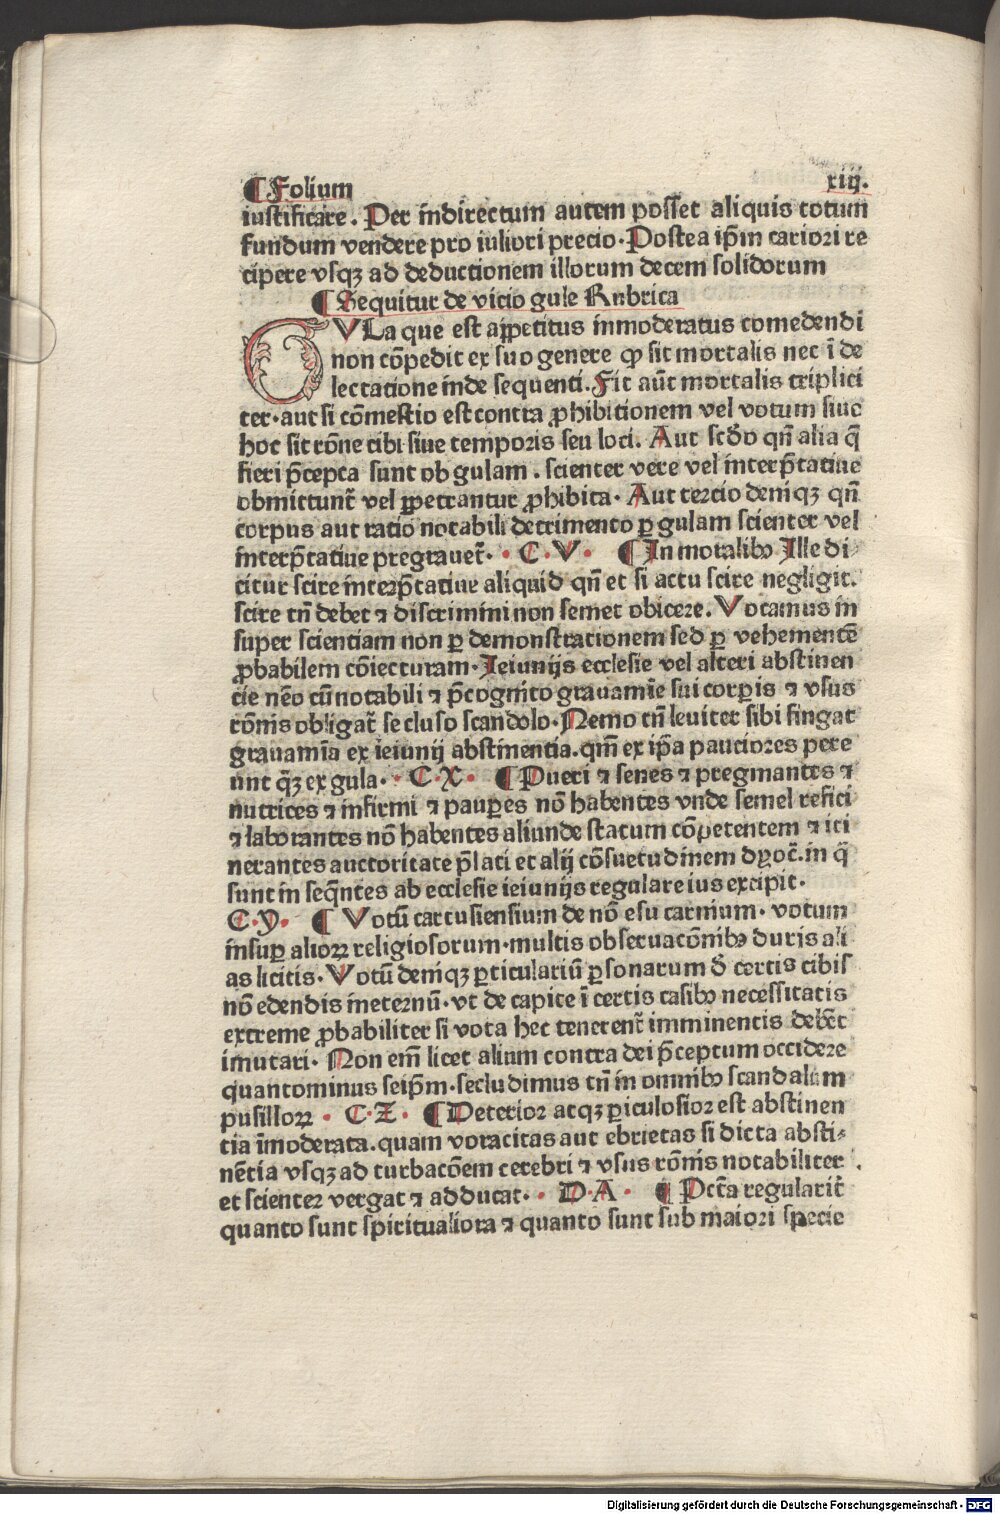 ¶ Folium xiij.
iustificare. Per indirectum autem posset aliquis totum
fundum vendere pro iuliori precio. Postea ip̄m cariori re
cipere vsqꝫ ad deductionem illorum decem solidorum
¶ Sequitur de vicio gule Rubrica
GVLa que est appetitus inmoderatus comedendi
non cōpedit ex suo genere ꝙ sit mortalis nec ī de
lectatione inde sequenti. Fit aūt mortalis triplici
ter. aut si cōmestio est contra ꝓhibitionem vel votum siue
hoc sit rōne cibi siue temporis seu loci. Aut scd̄o qn̄ alia q̄
fieri p̄cepta sunt ob gulam. scienter vere vel interp̄tatiue
obmittunt̄ vel ꝑpetrantur ꝓhibita. Aut tercio deniqꝫ qn̄
corpus aut ratio notabili detrimento ꝑ gulam scienter vel
interp̄tatiue pregrauet̄. · C · V · ¶ In moralibꝰ Ille di
citur scire interp̄tatiue aliquid qn̄ et si actu scire negligit.
scire tn̄ debet ⁊ discrimini non semet obicere. Vocamus in
super scientiam non ꝑ demonstrationem sed ꝑ vehementē
ꝓbabilem cōiecturam. Ieiunijs ecclesie vel alteri abstinen
cie nēo cū notabili ⁊ p̄cognito grauamīe sui corꝑis ⁊ vsus
rōnis obligat̄ secluso scandolo. Nemo tn̄ leuiter sibi fingat
grauamīa ex ieiunij abstinentia. qm̄ ex ip̄a pauciores pere
unt q̄ꝫ ex gula. · C · X · ¶ Pueri ⁊ senes ⁊ pregnantes ⁊
nutrices ⁊ infirmi ⁊ pauꝑes nō habentes vnde semel refici
⁊ laborantes nō habentes aliunde statum cōpetentem ⁊ iti
nerantes auctoritate p̄lati et alij cōsuetudinem dyoc̄. in q̄
sunt in seq̄ntes ab ecclesie ieiunijs regulare ius excipit.
C · y · ¶ Votū cartusiensium de nō esu carnium. votum
insuꝑ alioꝝ religiosorum. multis obseruacōnibꝰ duris ali
as licitis. Votū deniqꝫ ꝑticulariū ꝑsonarum d̄ certis cibis
nō edendis ineternū. vt de capite ī certis casibꝰ necessitatis
extreme ꝓbabiliter si vota hec tenerent̄ imminentis deb̄et
imutari. Non em̄ licet alium contra dei p̄ceptum occidere
quantominus seip̄m. secludimus tn̄ in omnibꝰ scandalum
pusilloꝝ · C · Z · ¶ Deterior atqꝫ ꝑiculosior est abstinen
tia īmoderata. quam voracitas aut ebrietas si dicta absti⸗
nētia vsqꝫ ad turbacōem cerebri ⁊ vsus rōnis notabiliter
et scienter vergat ⁊ adducat. · D · A · ¶ Pct̄a regularit̄
quanto sunt spiritualiora ⁊ quanto sunt sub maiori specie
Digitalisierung gefördert durch die Deutsche Forschungsgemeinschaft - DFG